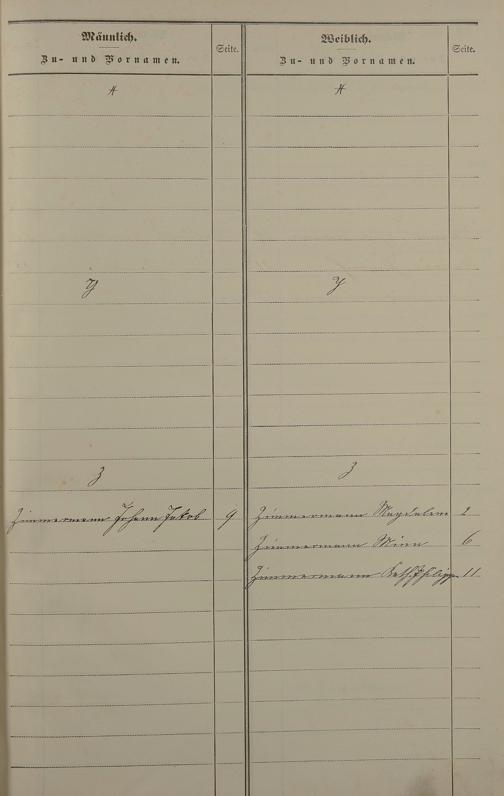 Männlich. Seite. Weiblich. Seite.
Zu- und Vornamen. Zu- und Vornamen.
X X
Y Y
Z Z
Zimmermann Johann Jakob 9 Zimmermann Magdalena 2
Zimmermann Mina 6
Zimmermann 11